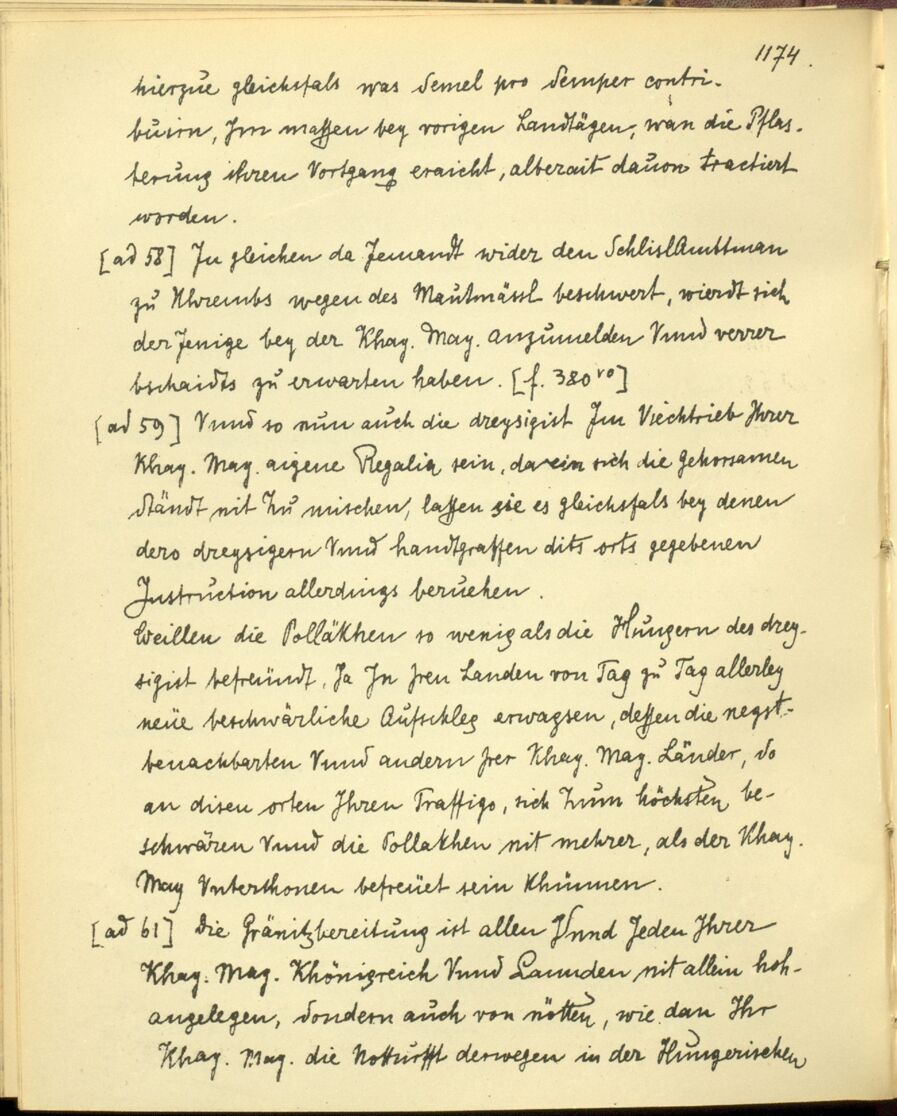 1174.
hierzue gleichsfals was Semel pro Semper contri-
buirn, Jm massen bey vorigen Landtägen, wan die Pflas-
terung ihren Vortgang eraicht, alberait dauon tractiert
worden.
[ad 58] Jn gleichen da Jemandt wider den SchlislAmbtman
zu Khrembs wegen des Mautmässl beschwert, wierdt sich
der Jenige bey der Khay. May. anzumelden Vnnd verrer
bschaidts zu erwarten haben. [f. 380vo]
[ad 59] Vnnd so nun auch die dreysigist Jm Viechtrieb Jhrer
Khay. May. aigene Regalia sein, darein sich die gehorsamen
Ständt nit Zu mischen, lassen sie es gleichsfals bey denen
dero dreysigern Vnnd handtgraffen dits orts gegebenen
Instruction allerdings beruehen.
Weillen die Polläkhen so wenig als die Hungern des drey-
sigist befreündt, Ja Jn Jren Landen von Tag zu Tag allerley
neüe beschwärliche Aufschleg erwagsen, dessen die negst-
benachbarten Vnnd andern Jrer Khay. May. Länder, So
an disen orten Jhren Traffigo, sich Zum höchsten be-
schwären Vnnd die Pollakhen nit mehrer, als der Khay.
May Vnterthonen befreüet sein Khünnen.
[ad 61] Die Gränitzbereitung ist allen Vnnd Jeden Jhrer
Khay. May. Khönigreich Vnnd Lannden nit allein hoh-
angelegen, Sondern auch von nötten, wie dan Jhr
Khay. May. die Notturfft derwegen in der Hungerischen